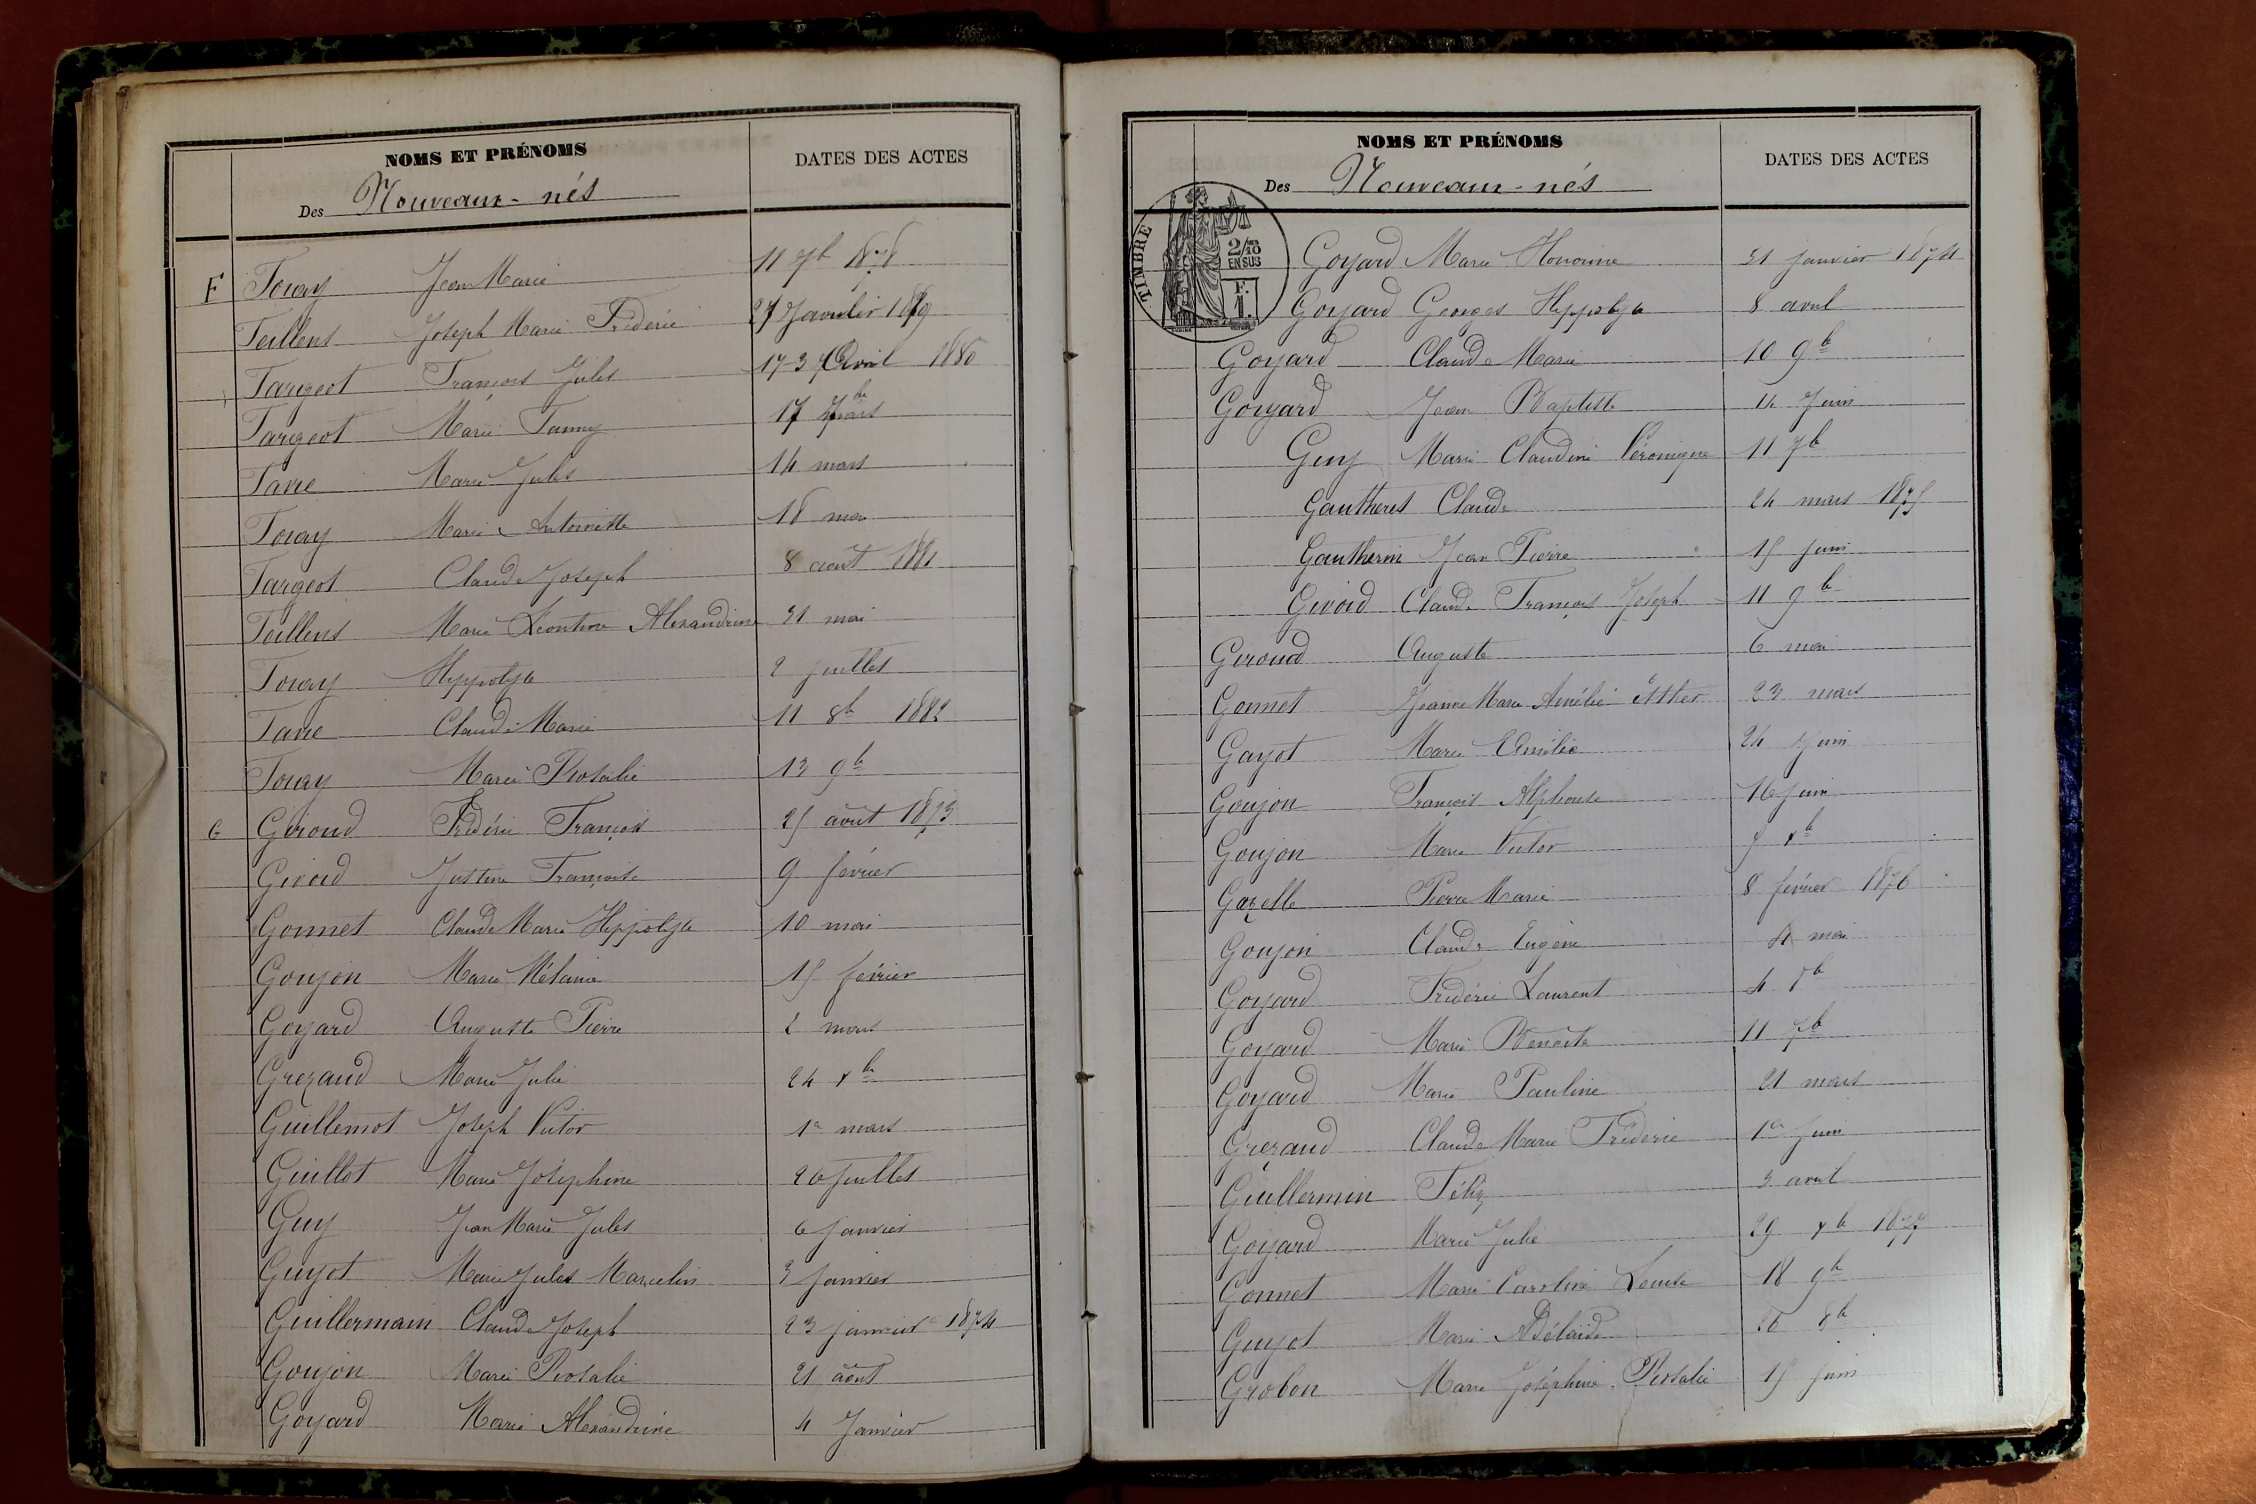 NOMS ET PRÉNOMS
DATES DES ACTES
Des Nouveaux-nés
F Fouay Jean Marie 11 7b 1878
Feillens Joseph Marie Frédéric 27 Janvier 1879
Fargeot François Jules Avril 1880
Fargeot Marie Fanny 17 mars
Favre Marie Jules 14 mars
Fouay Marie Antoinette 18 mai
Fargeot Claude Joseph 8 août 1881
Feillens Marie Léontine Alexandrine 21 mai
Fouay Hyppolyte 2 juillet
Favre Claude Marie 11 8b 1882
Fouay Marie Rosalie 13 9b
G Giroud Frédéric François 25 août 1873
Givord Justine Françoise 9 février
Gonnet Claude Marie Hippolyte 10 mai
Goujon Marie Mélanie 15 février
Goyard Auguste Pierre 2 mars
Grezaud Marie Julie 24 xbr
Guillemot Joseph Victor 1er mars
Guillot Marie Joséphine 26 juillet
Guy Jean Marie Jules 6 janvier
Guyot Marie Jules Marcelin 3 janvier
Guillermain Claude Joseph 23 janvier 1874
Goujon Marie Rosalie 21 août
Goyard Marie Alexandrine 4 Janvier
NOMS ET PRÉNOMS
DATES DES ACTES
Des Nouveaux-nés
TIMBRE
2/10
EN SUS
F.
1.
Goyard Marie Honorine 21 janvier 1874
Goyard Georges Hyppolyte 8 avril
Goyard Claude Marie 10 9b
Goyard Jean Baptiste 14 Juin
Guy Marie Claudine Véronique 11 7b
Gautheret Claude 24 mars 1875
Gautherin Jean Pierre 15 juin
Givord Claude François Joseph 11 9b
Giroud Auguste 6 mai
Gonnet Jeanne Marie Amélie Esther 23 mars
Gayot Marie Emilie 24 Juin
Goujon François Alphonse 16 Juin
Goujon Marie Victor 5 xb
Gazelle Pierre Marie 8 février 1876
Goujon Claude Eugène mai
Goyard Frédéric Laurent 4 8b
Goyard Marie Benoite 11 7b
Goyard Marie Pauline 21 mars
Grezaud Claude Marie Frédéric 1er Juin
Guillermin Félix 3 avril
Goyard Marie Julie 29 xb 1877
Gonnet Marie Caroline Louise 18 9b
Guyot Marie Adélaïde 8b
Grobon Marie Joséphine Rosalie 15 Juin